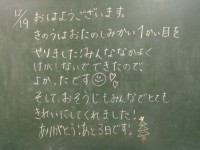 12/19 おはようございます。
きのうはおたのしみかい1かい目を
やりました!みんななかよく
けがしないでできたので、
よかったです
そして、おそうじもみんなでとても
きれいにしてくれました!
ありがとう!あと3日です。